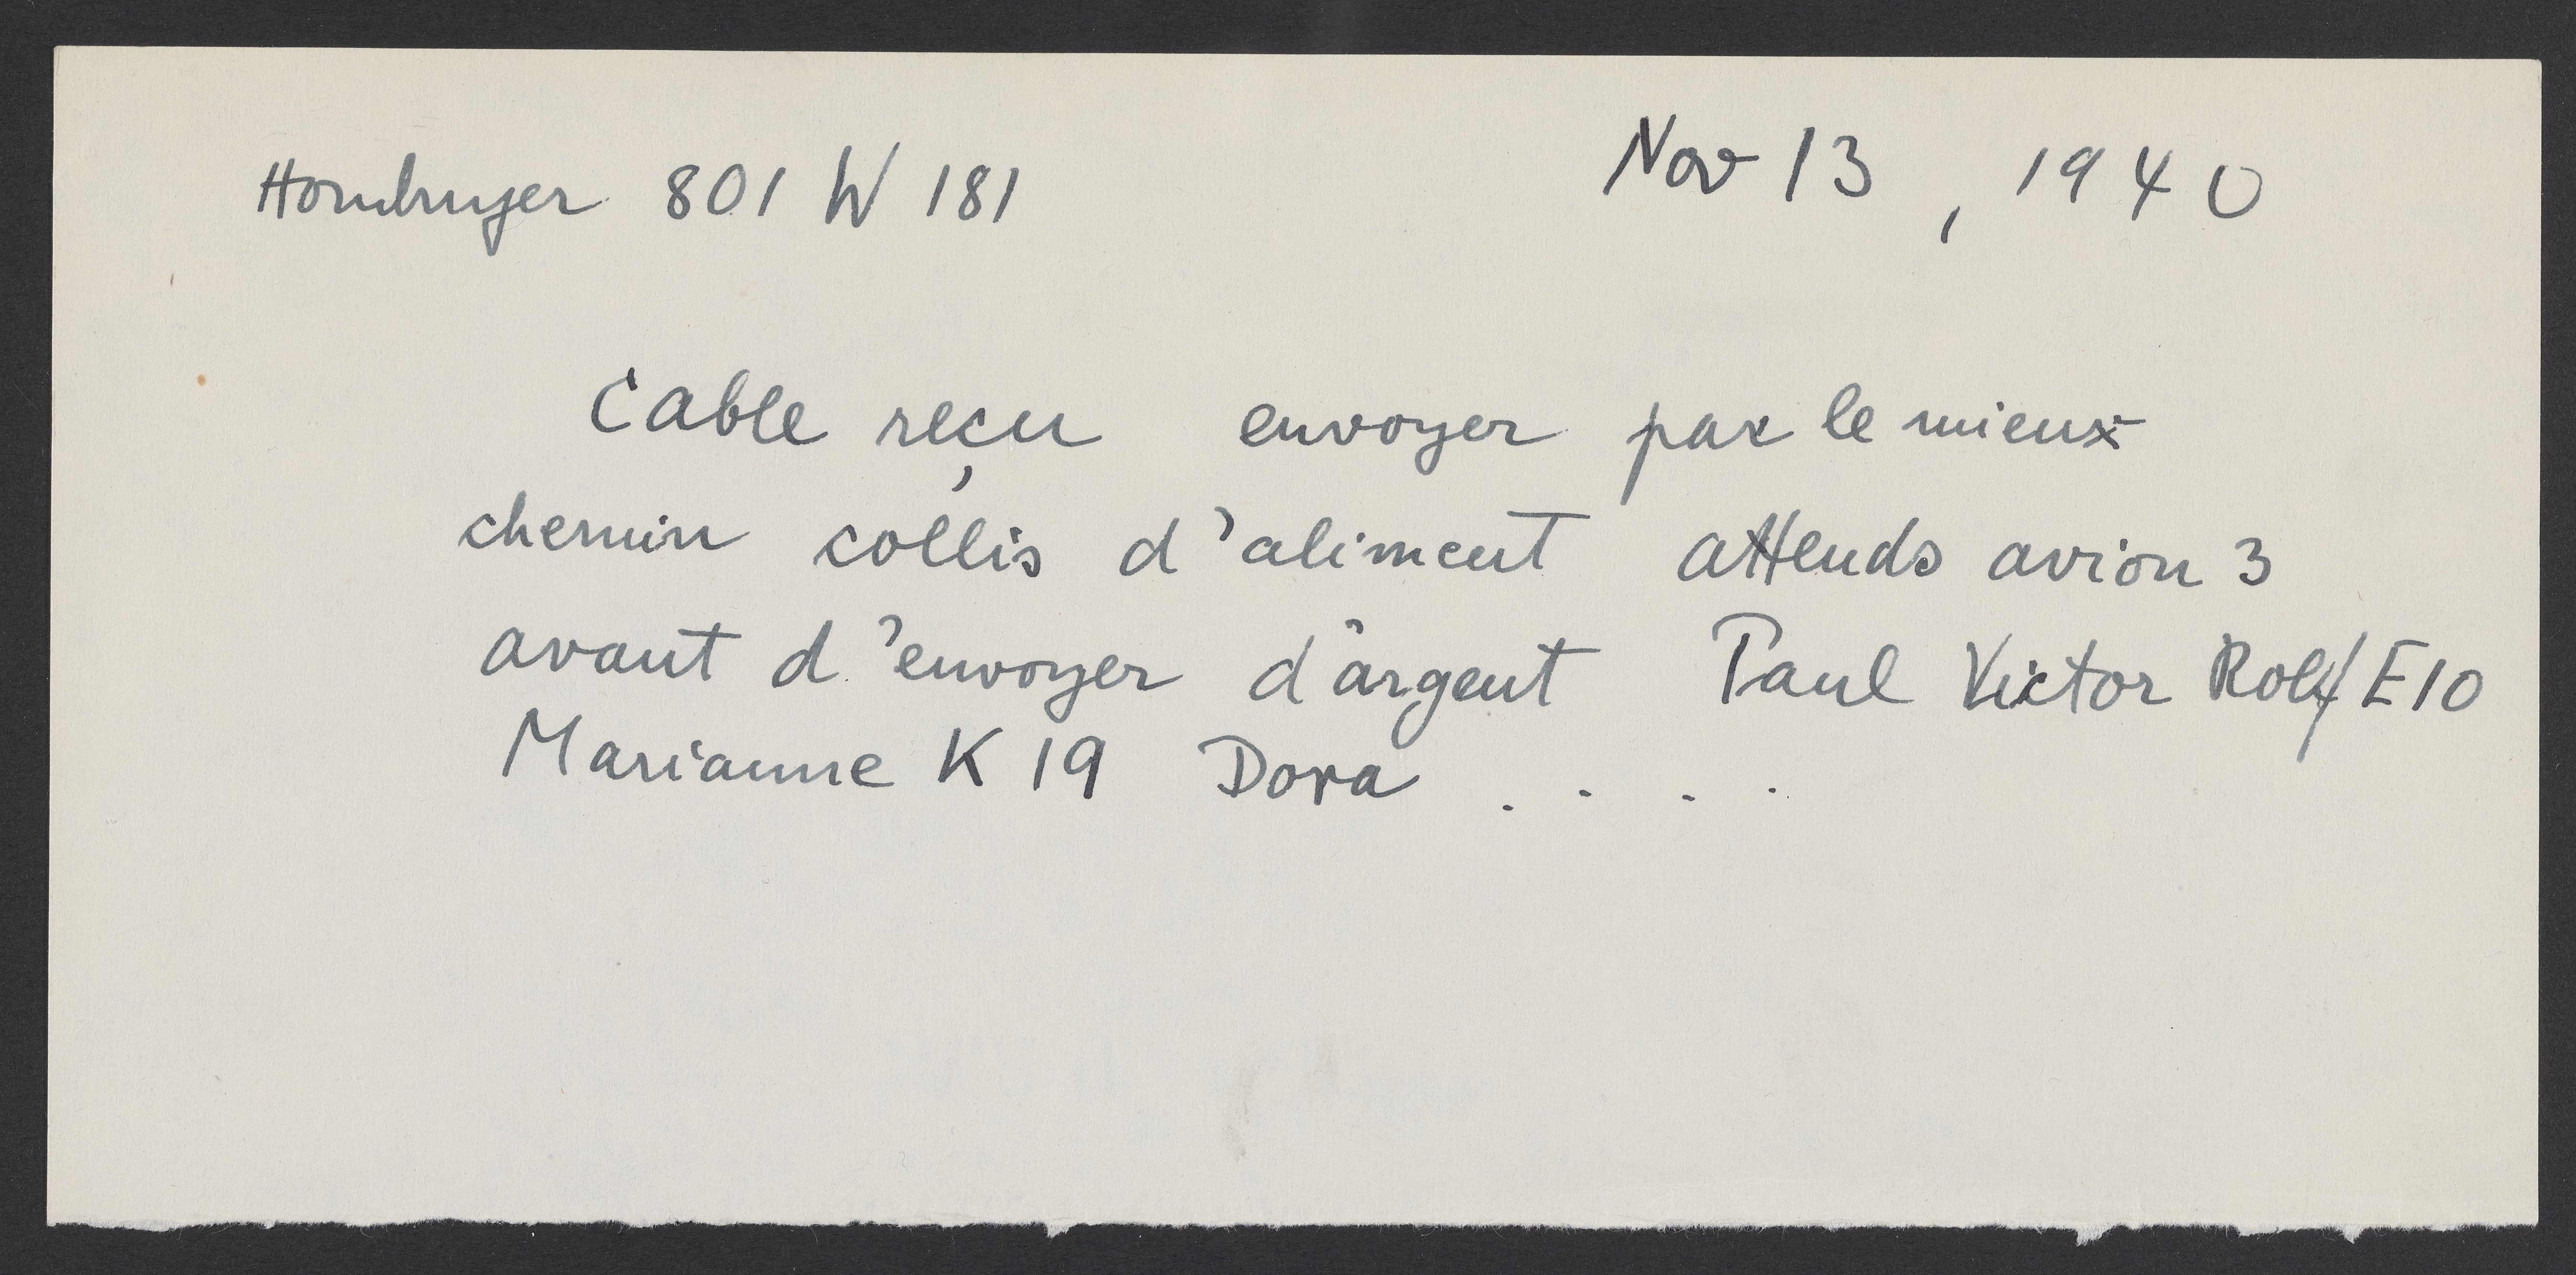 Homburger 801 W 181 Nov 13, 1940
Cable reçu envoyer par le mieux
chemin collis d'aliment attends avion 3
avant d'envoyer d'argent Paul Victor Rolf/E10
Marianne K 19 Dora . . . .